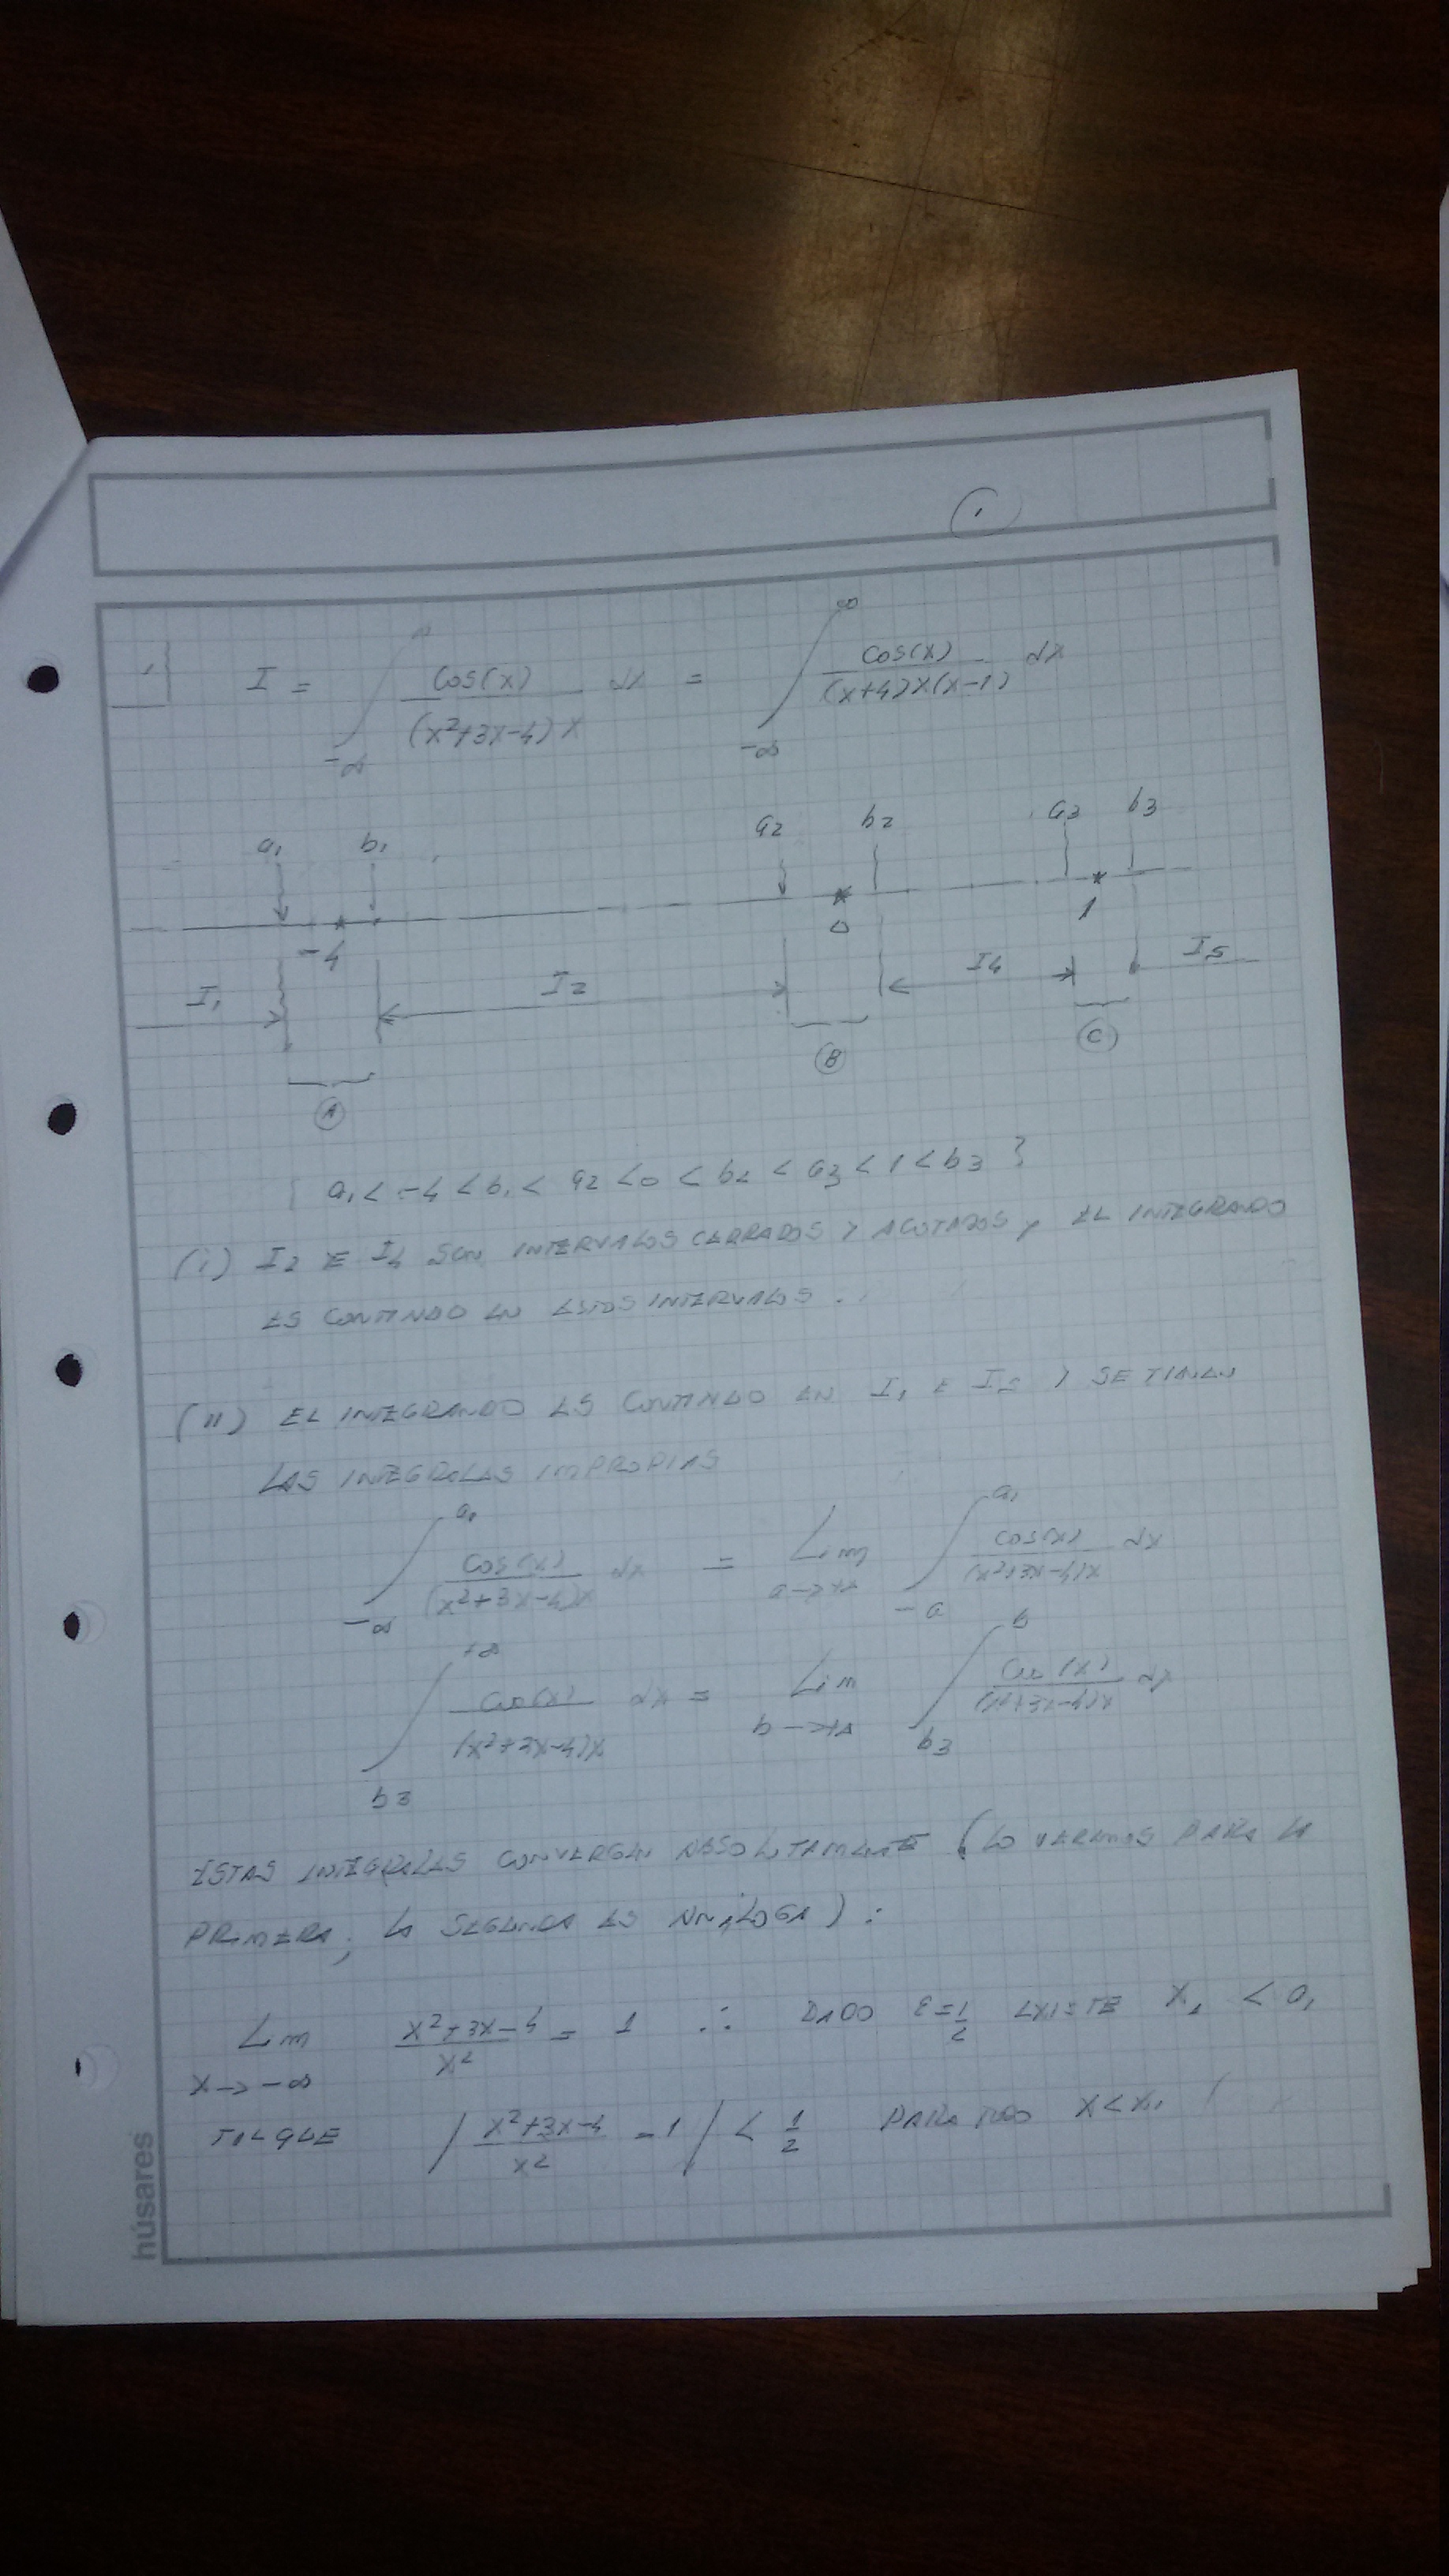 1
1) I = ∫_{-∞}^{∞} cos(x)/((x²+3x-4)x) dx = ∫_{-∞}^{∞} cos(x)/((x+4)x(x-1)) dx
a₁ b₁ a₂ b₂ a₃ b₃
-4 0 1
I₁ I₂ I₄ I₅
A B C
{ a₁ < -4 < b₁ < a₂ < 0 < b₂ < a₃ < 1 < b₃ }
(i) I₂ E I₄ SON INTERVALOS CERRADOS Y ACOTADOS, EL INTEGRANDO
ES CONTINUO EN ESTOS INTERVALOS.
(ii) EL INTEGRANDO ES CONTINUO EN I₁ E I₅ Y SE TIENEN
LAS INTEGRALES IMPROPIAS
∫_{-∞}^{a₁} cos(x)/((x²+3x-4)x) dx = Lim_{a→+∞} ∫_{-a}^{a₁} cos(x)/((x²+3x-4)x) dx
∫_{b3}^{+∞} cos(x)/((x²+3x-4)x) dx = Lim_{b→+∞} ∫_{b3}^{b} cos(x)/((x²+3x-4)x) dx
ESTAS INTEGRALES CONVERGEN ABSOLUTAMENTE (LO VEREMOS PARA LA
PRIMERA, LA SEGUNDA ES ANÁLOGA):
Lim_{x→-∞} (x²+3x-4)/x² = 1 ∴ DADO ε=1/2 EXISTE x₁ < a₁
TAL QUE |(x²+3x-4)/x² - 1| < 1/2 PARA TODO x<x₁
húsares